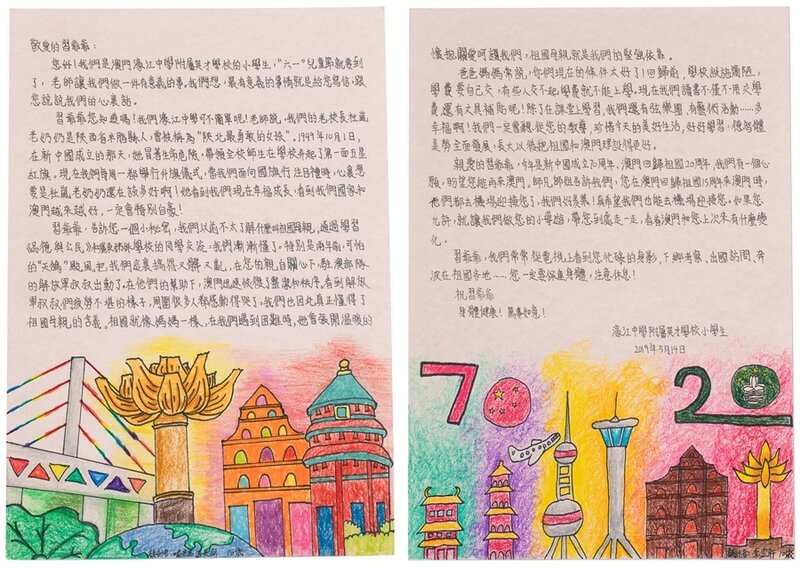 敬愛的習爺爺：
您好！我們是澳門濠江中學附屬英才學校的小學生，“六一”兒童節就要到
了，老師讓我們做一件有意義的事，我們想，最有意義的事情就是給您寫信，跟
您說說我們的心裏話。
習爺爺您知道嗎？我們濠江中學可不簡單呢！老師說，我們的老校長杜嵐
老奶奶是陝西省米脂縣人，曾被稱為“陝北最勇敢的女孩”。1949年10月1日，
在新中國成立的那天，她冒着生命危險，帶領全校師生在學校升起了第一面五星
紅旗。現在我們每周一都舉行升旗儀式，當我們面向國旗行注目禮時，心裏想
要是杜嵐老奶奶還在該多好啊！她看到我們現在幸福成長，看到我們國家和
澳門越來越好，一定會特別自豪！
習爺爺，告訴您一個小秘密，我們以前不太了解什麼叫祖國母親，通過學習
《品德與公民》和學校的同學交流，我們漸漸懂了。特別是兩年前，可怕
的“天鴿”颱風把我們這裏搞得又髒又亂，在您的親自關心下，駐澳部隊
的解放軍叔叔出動了。在他們的幫助下，澳門迅速恢復了整潔和秩序。看到解放
軍叔叔們疲勞不堪的樣子，周圍很多人都感動得哭了，我們也因此真正懂得了
祖國母親的含義。祖國就像媽媽一樣，在我們遇到困難時，她會張開溫暖的
懷抱，關愛呵護我們，祖國母親就是我們的堅強依靠。
爸爸媽媽常說，你們現在的條件太好了！回歸前，學校設施簡陋，
學費要自己交，有些人交不起學費就不能上學。現在我們讀書不僅不用交學
費，還有文具補貼呢！除了在課堂上學習，我們還有弦樂團，有藝術活動……多
幸福啊！我們一定會聽從您的教導，珍惜今天的美好生活，好好學習，德智體
美勞全面發展，長大以後把祖國和澳門建設得更好。
親愛的習爺爺，今年是新中國成立70周年、澳門回歸祖國20周年，我們有一個心
願，盼望您能再來澳門。師兄師姐告訴我們，您在澳門回歸祖國15周年來澳門時，
他們都去機場迎接您了，我們好羨慕！真希望我們也能去機場迎接您。如果您
允許，就讓我們做您的小導遊，帶您到處走一走，看看澳門和您上次來有什麼變
化。
習爺爺，我們常常從電視上看到您忙碌的身影，下鄉考察、出國訪問、奔
波在祖國各地……您一定要保重身體，注意休息！
祝習爺爺
身體健康！萬事如意！
濠江中學附屬英才學校小學生
2019年5月14日
70
20
10歲
10歲